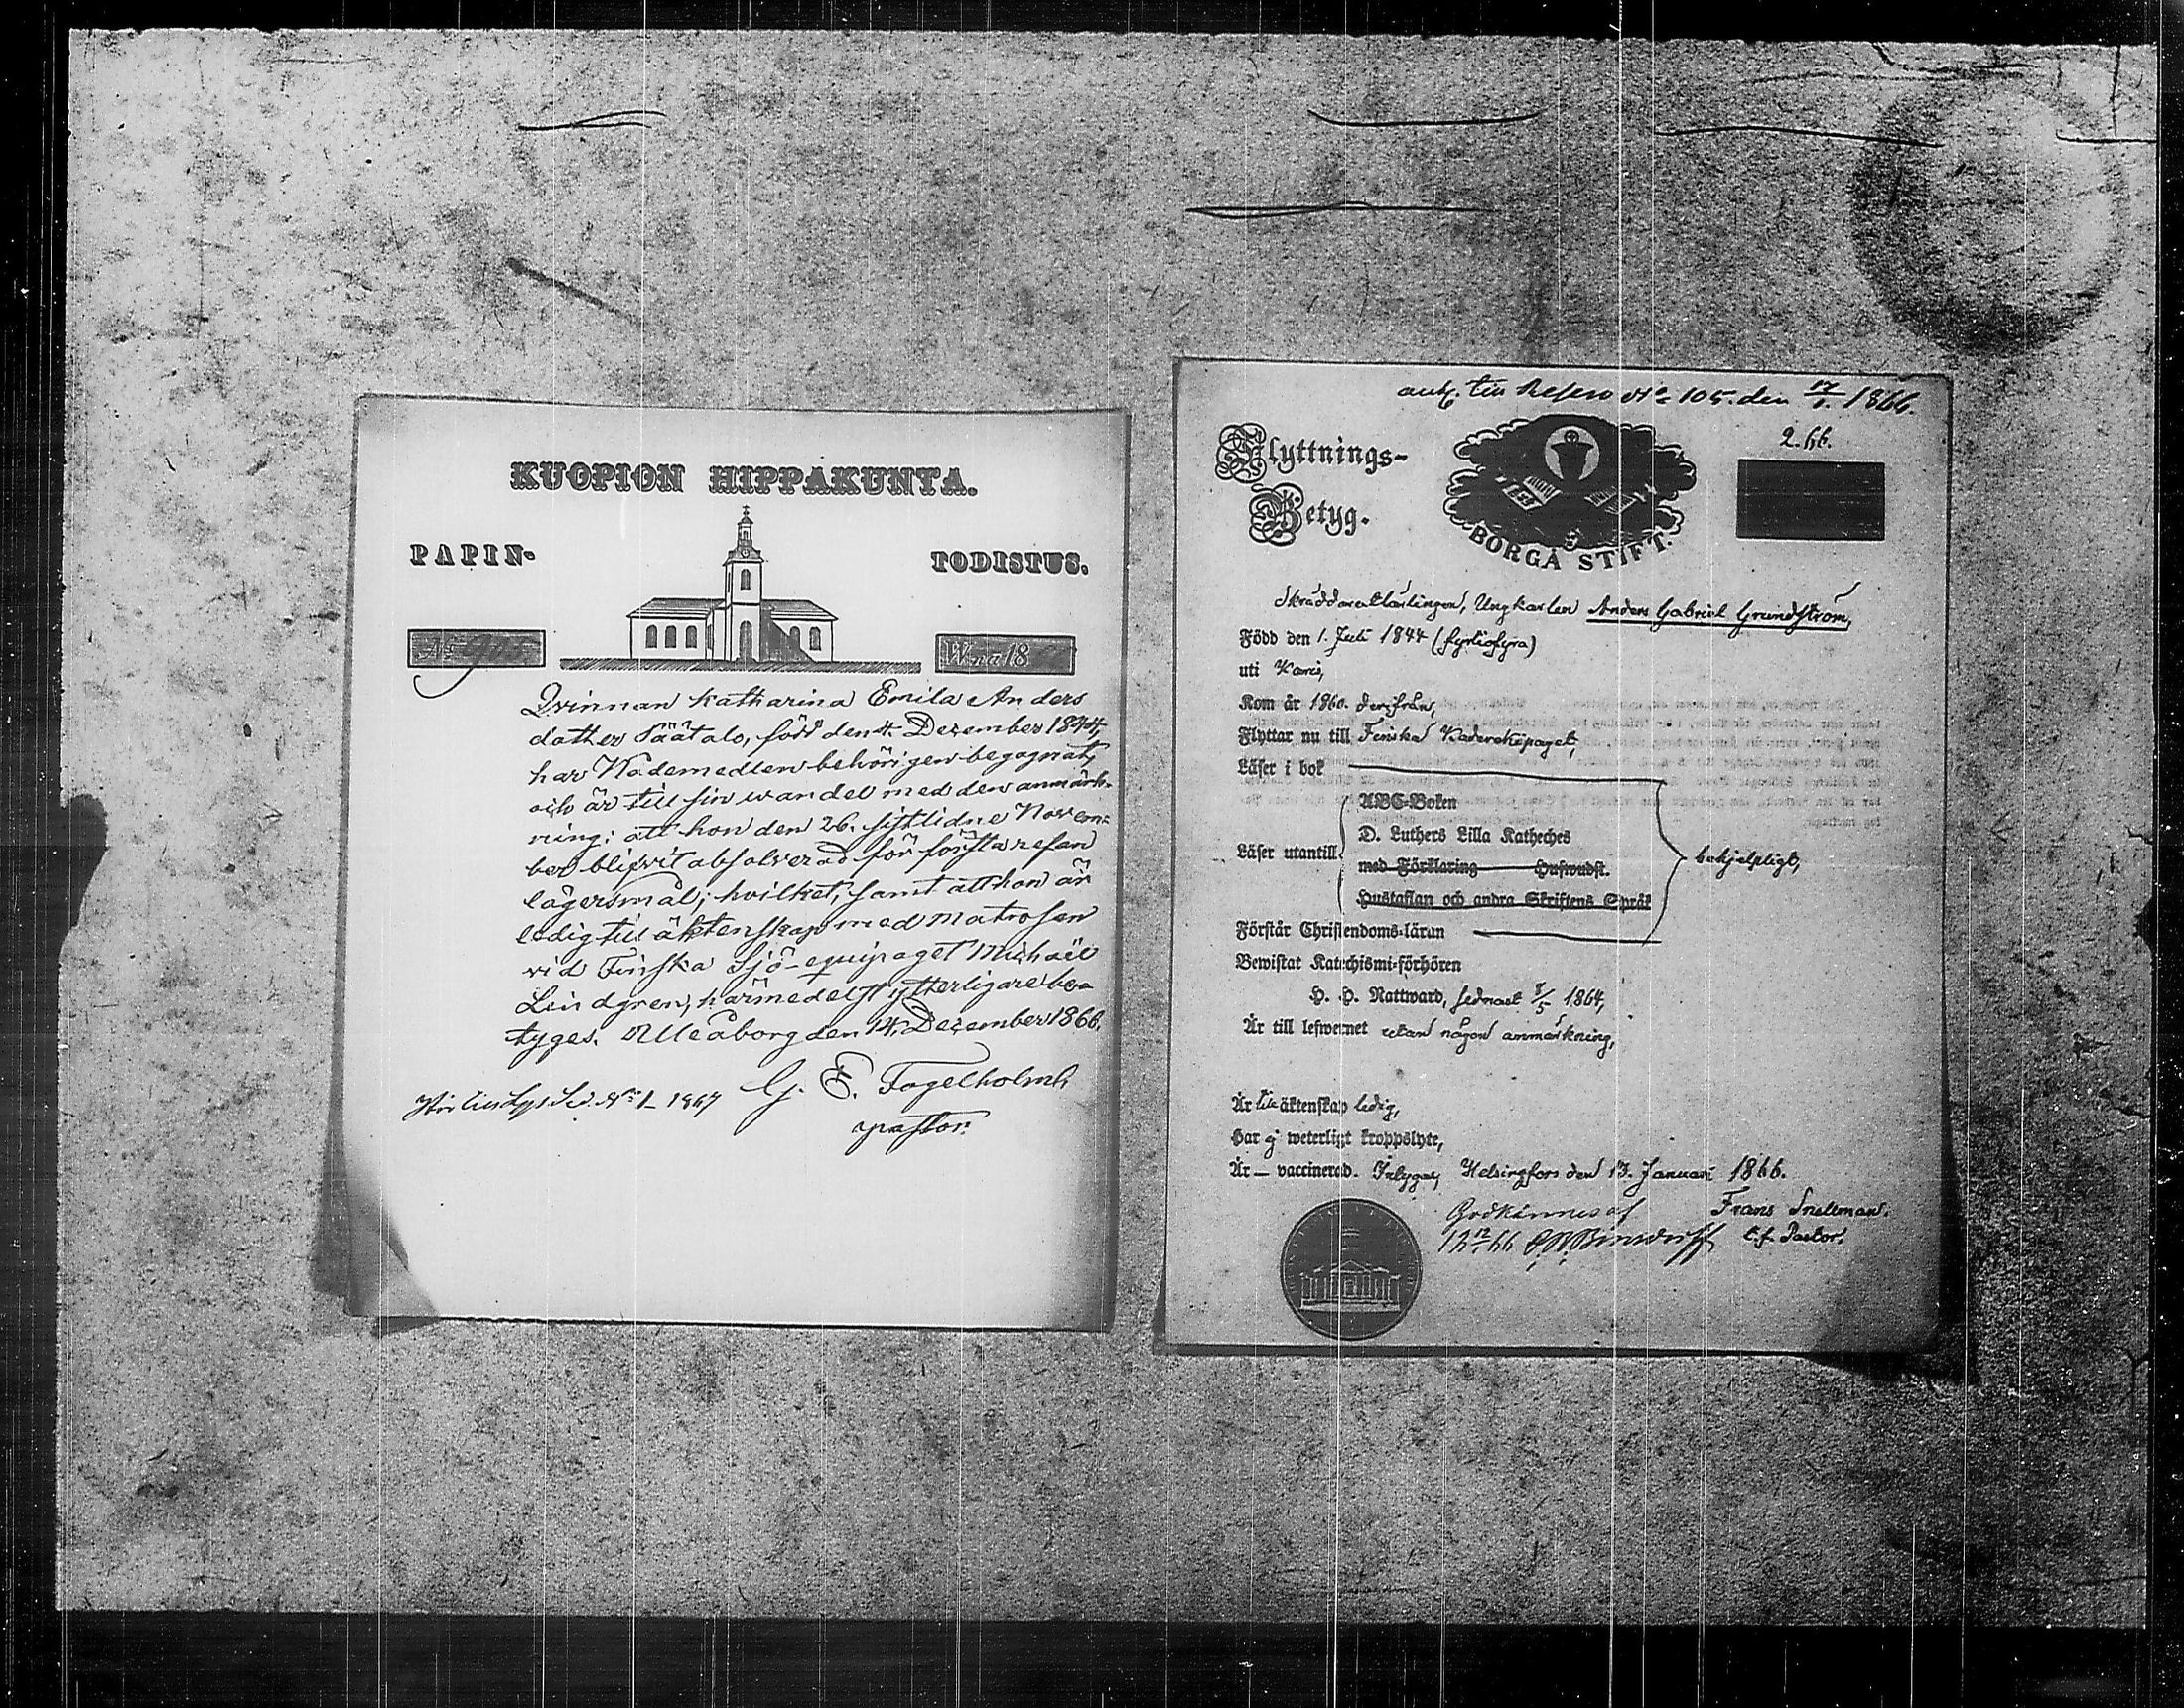 KUOPION HIPPAKUNTA.
PAPIN-
TODISTUS.
No
Wna 18
Qvinnan Katharina Emila Anders
dotter Päätalo, född den 4. December 1844,
har Nådemedlen behörigen begagnat,
och är till sin wandel med den anmärk-
ning: att hon den 26. sistlidne Novem-
ber blifvit absolverad för första resan
lägersmål; hvilket, samt att hon är
ledig till äktenskap med Matrosen
vid Finska Sjö-equipaget Michael
Lindgren, härmedelst ytterligare be-
tyges. Uleåborg den 14. December 1866.
G. E. Fogelholm
pastor.
No 1 1867
ank. No 105. den 17/1. 1866.
2. 66.
Flyttnings-
Betyg.
BORGÅ STIFT.
Skräddarelärlingen, Ungkarlen Anders Gabriel Grundström,
Född den 1. Juli 1844 (fyrtiofyra)
uti Karis,
Kom år 1860. derifrån,
Flyttar nu till Finska
Läser i bok
ABC-Boken
D. Luthers Lilla Katheches
Läser utantill
med Förklaring Huswudst.
Hustaflan och andra Skriftens Språk
behjelpligt,
Förstår Christendoms-läran
Bewistat Katechismi-förhören
H. H. Nattward, sednast 8/5 1864,
Är till lefwernet utan någon anmärkning,
Är till äktenskap ledig,
Har ej weterligt kroppslyte,
Är — vaccinerad. Helsingfors den 13. Januari 1866.
Godkännes af
Frans Snellman.
12/1 66
t.f. Pastor.